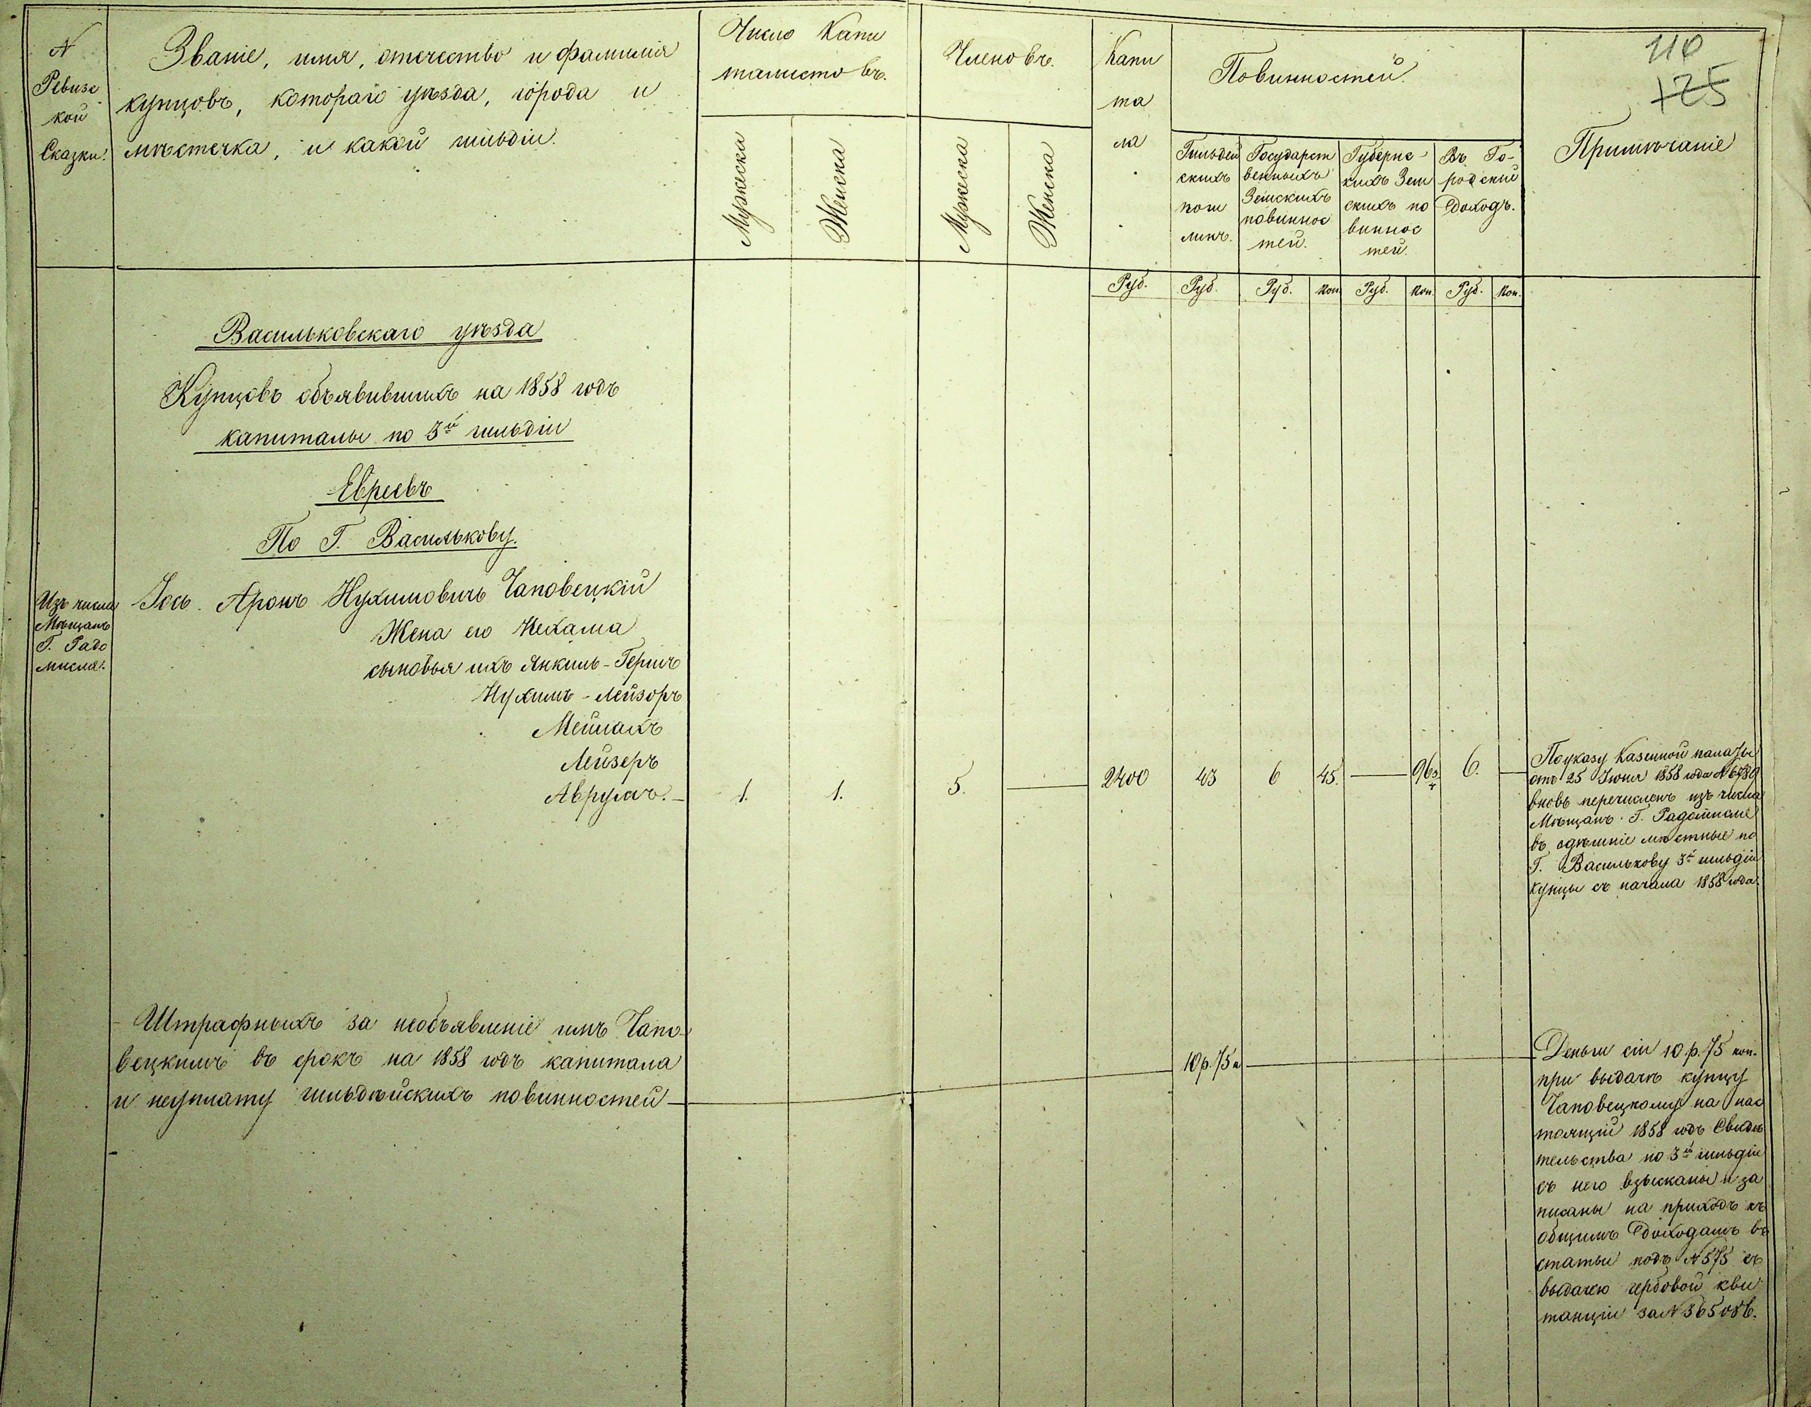 110
175
N
Ревизс
кой
Сказки.
Званіе, имя, отечество и фамилія
купцовъ, котораго уѣзда, города и
мѣстечка, и какой гильдіи.
Число Капи
талистовъ.
Мужеска
Женска
Членовъ.
Мужеска
Женска
Капи
та
ла
Повинностей.
Гильдей
скихъ
пош
линъ.
Государст
венныхъ
Земскихъ
повиннос
тей.
Губернс
кихъ Зем
скихъ по
виннос
тей.
Въ Го-
родский
Доходъ.
Примѣчаніе
Руб. Руб. Руб. Коп. Руб. Коп. Руб. Коп.
Васильковскаго уѣзда
Купцовъ объявившихъ на 1858 годъ
капиталы по 3й гильдіи
Евреевъ
По Г. Василькову.
Изъ числа
Мѣщанъ
Г. Радо
мысля.
Іось Аронъ Нухимовичъ Чаповецкій
Жена его Нехама
сыновья ихъ Янкиль-Гершъ
Нухимъ-Лейзоръ
Мейлахъ
Лейзеръ
Аврумъ. 1. 1. 5. 2400 43 6 45. 96 6.
По указу Казенной палаты
отъ 25 Іюня 1858 года №
вновь перечисленъ изъ числа
Мѣщанъ Г. Радомысля
въ здѣшніе мѣстные по
Г. Василькову 3й гильдіи
купцы съ начала 1858 года.
Штрафныхъ за необъявленіе имъ Чапо-
вецкимъ въ срокъ на 1858 годъ капитала
и неуплату гильдейскихъ повинностей
10 р. 75 к
Деньги сіи 10.р.75 коп.
при выдачѣ купцу
Чаповецкому на нас
тоящій 1858 годъ Свидѣ
тельства по 3й гильдіи
съ него взысканы и за
писаны на приходъ къ
общимъ доходамъ въ
статьи подъ №575 съ
выдачею гербовой кви
танціи за №